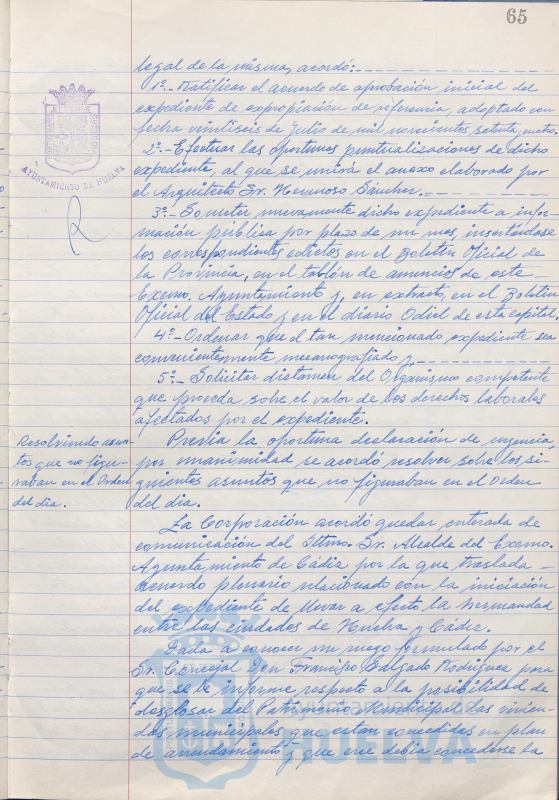 65
legal de la misma, acordó:
1º.- Ratificar el acuerdo de aprobación inicial del
expediente de expropiación de referencia, adoptado con
fecha veintiseis de Julio de mil novecientos setenta,
2º.- Efectuar las oportunas puntualizaciones de dicho
expediente, al que se unirá el anexo elaborado por
el Arquitecto Sr. Hermoso Sánchez.
3º.- Someter nuevamente dicho expediente a infor-
mación pública por plazo de un mes, insertándose
los correspondientes edictos en el Boletín Oficial de
la Provincia, en el tablón de anuncios de este
Excmo. Ayuntamiento y, en extracto, en el Boletín
Oficial del Estado y en el diario Odiel de esta capital.
4º.- Ordenar que el tan mencionado expediente sea
convenientemente mecanografiado y,
5º.- Solicitar dictamen del Organismo competente
que proceda, sobre el valor de los derechos laborales
afectados por el expediente.
Resolviendo asun-
tos que no figu-
raban en el Orden
del dia.
Previa la oportuna declaración de urgencia,
por unanimidad se acordó resolver sobre los si-
guientes asuntos que no figuraban en el Orden
del dia.
La Corporación acordó quedar enterada de
comunicación del Iltmo. Sr. Alcalde del Excmo.
Ayuntamiento de Cádiz por la que traslada
acuerdo plenario relacionado con la iniciación
del expediente de llevar a efecto la hermandad
entre las ciudades de Huelva y Cádiz.
Dada a conocer un ruego formulado por el
Sr. Concejal Don Francisco Salgado Rodriguez para
que se le informe respecto a la posibilidad de
desglosar del Patrimonio Municipal las vivien-
das municipales que estan concedidas en plan
de arrendamiento y que cree debia concederse la
AYUNTAMIENTO DE HUELVA
Ayuntamiento de
HUELVA